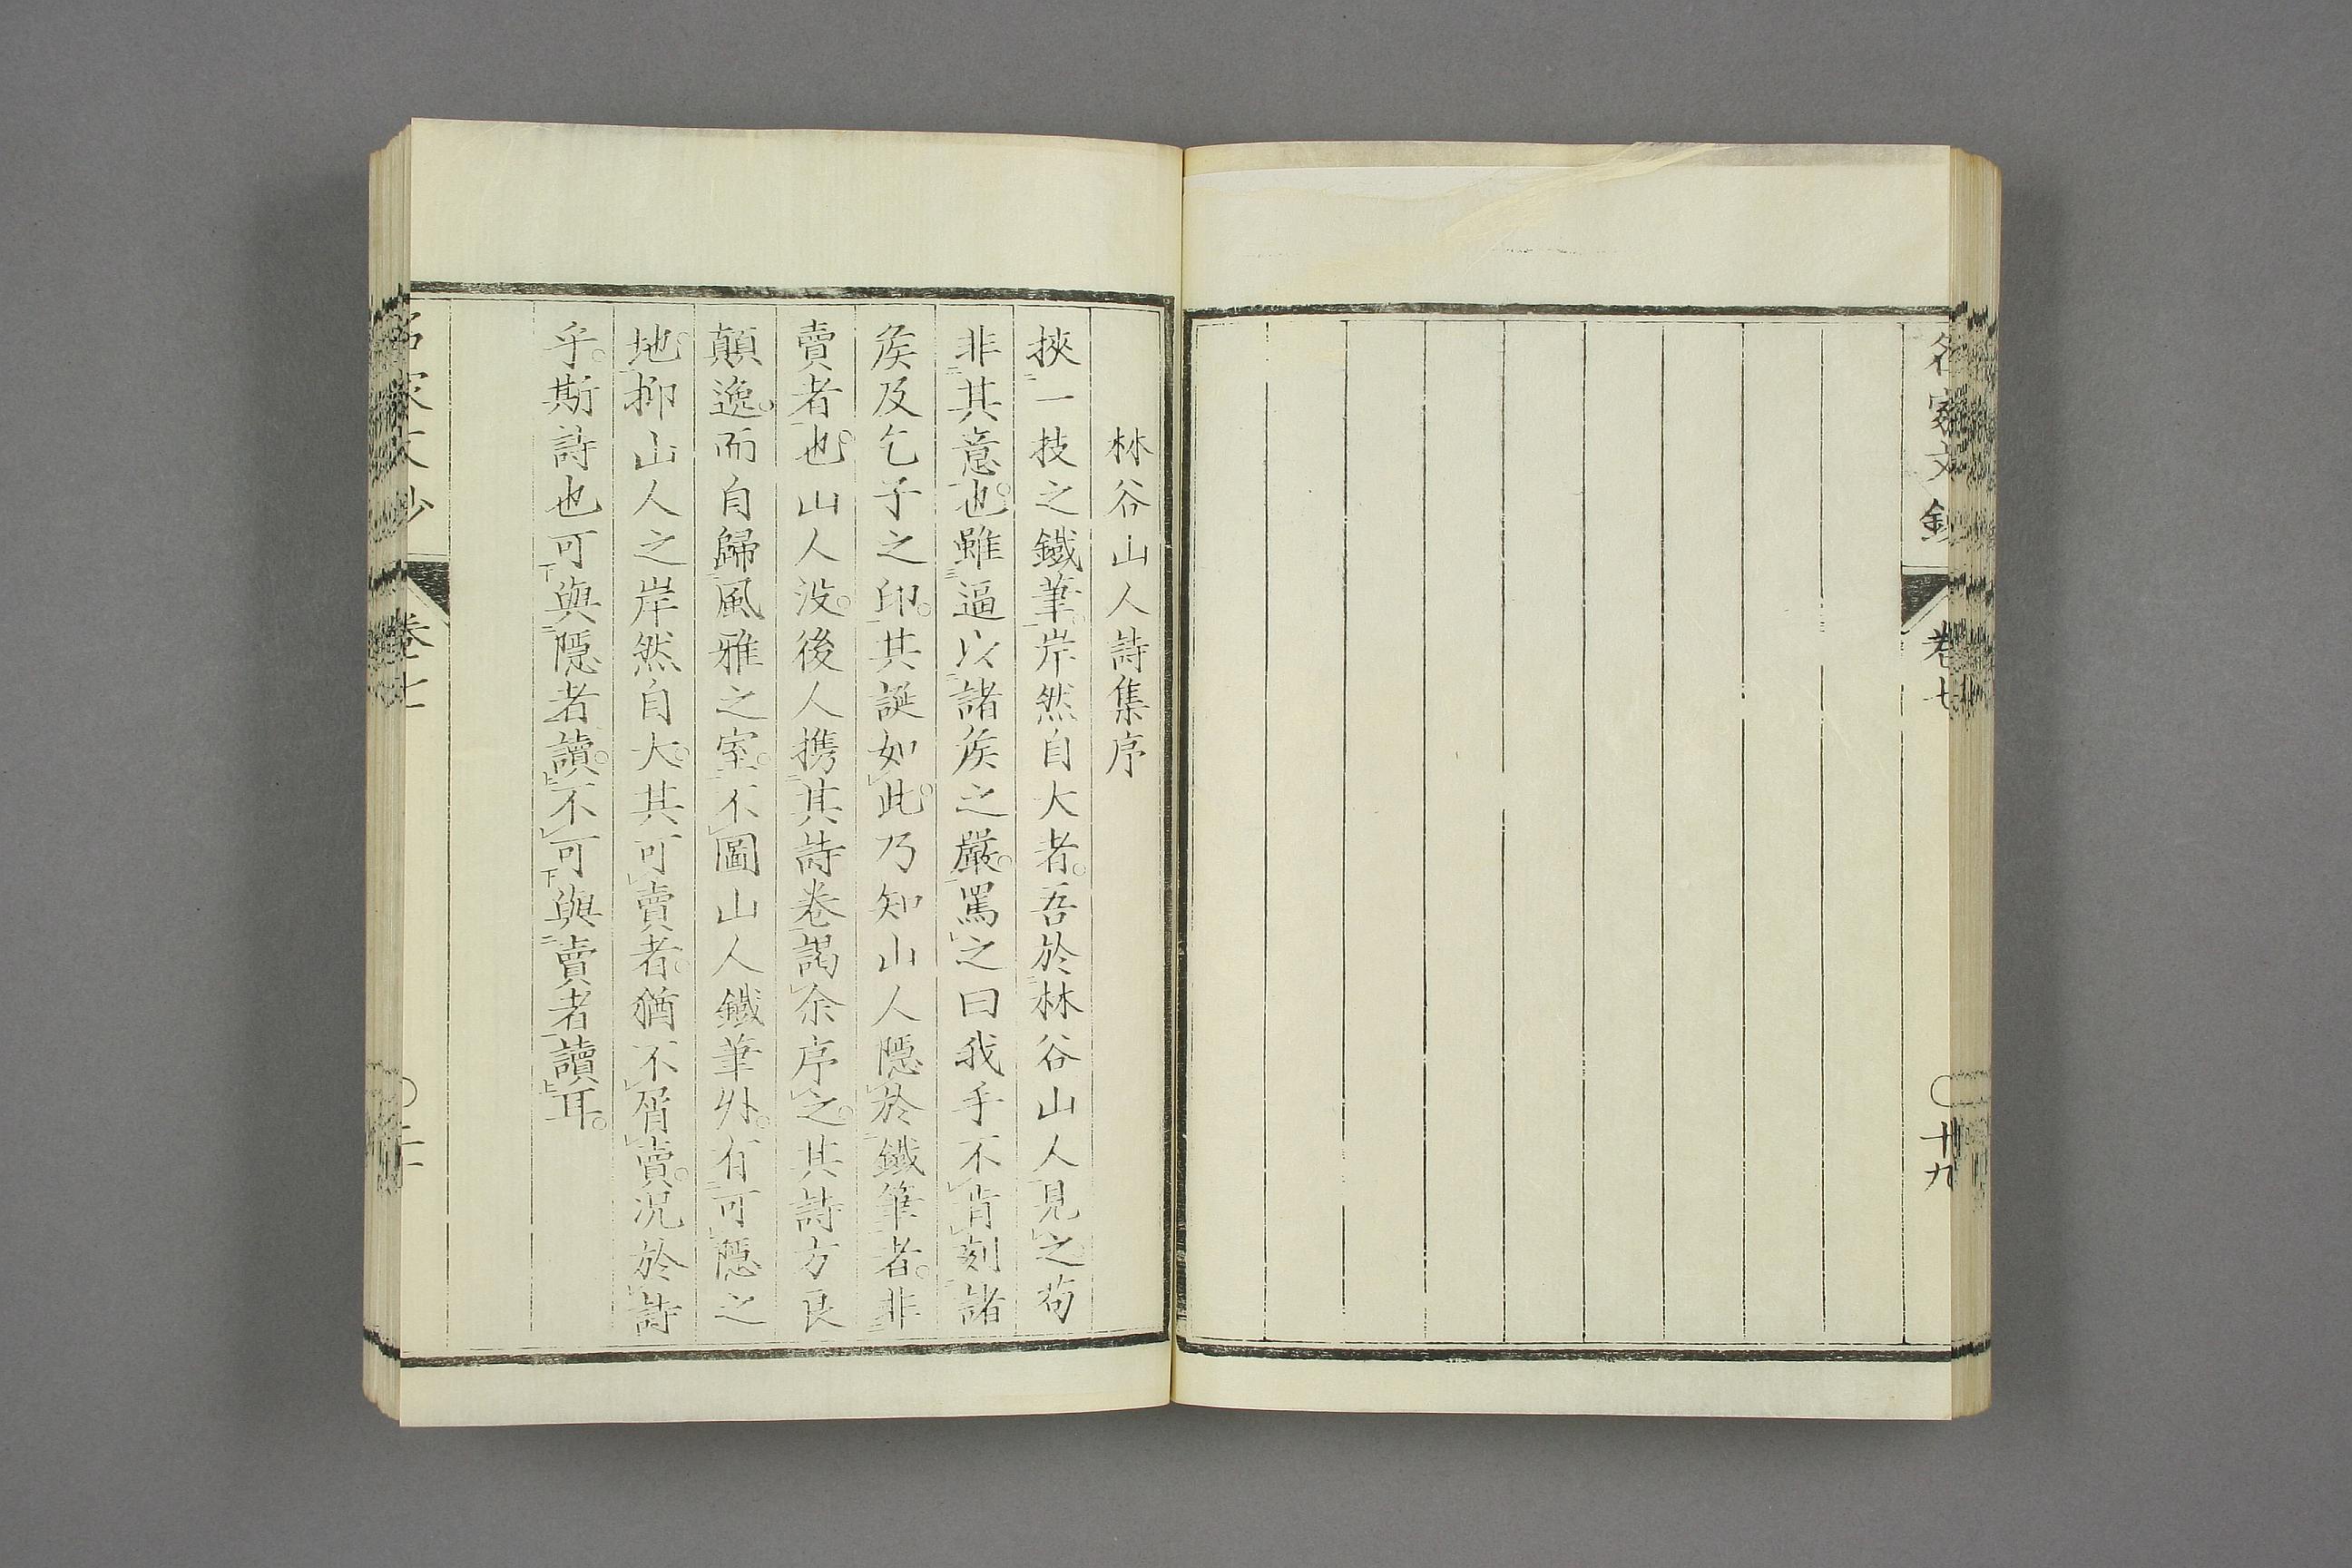 名家文鈔
卷七
十九
林谷山人詩集序
挾一技之鐵筆。岸然自大者。吾於林谷山人見之苟
非其意也。雖逼以諸矦之嚴。罵之曰我手不肯刻諸
矦及乞子之印。其誕如此。乃知山人隱於鐵筆者。非
賣者也。山人沒。後人携其詩卷謁余序之。其詩方良
顛逸。而自歸風雅之室。不圖山人鐵筆外。有可隱之
地。抑山人之岸然自大。其可賣者。猶不屑賣。况於詩
乎。斯詩也可與隱者讀。不可與賣者讀耳。
名家文鈔
卷七
二十